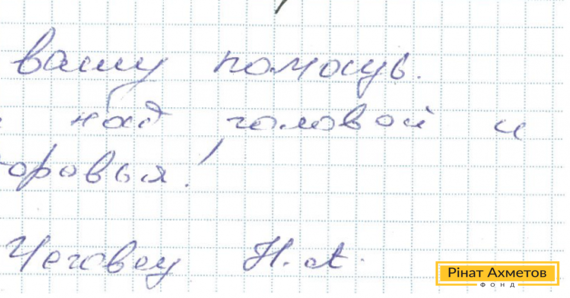 вашу помощь.
над головой и
оровья!
Чеговец Н.А.
Рінат Ахметов
ФОНД